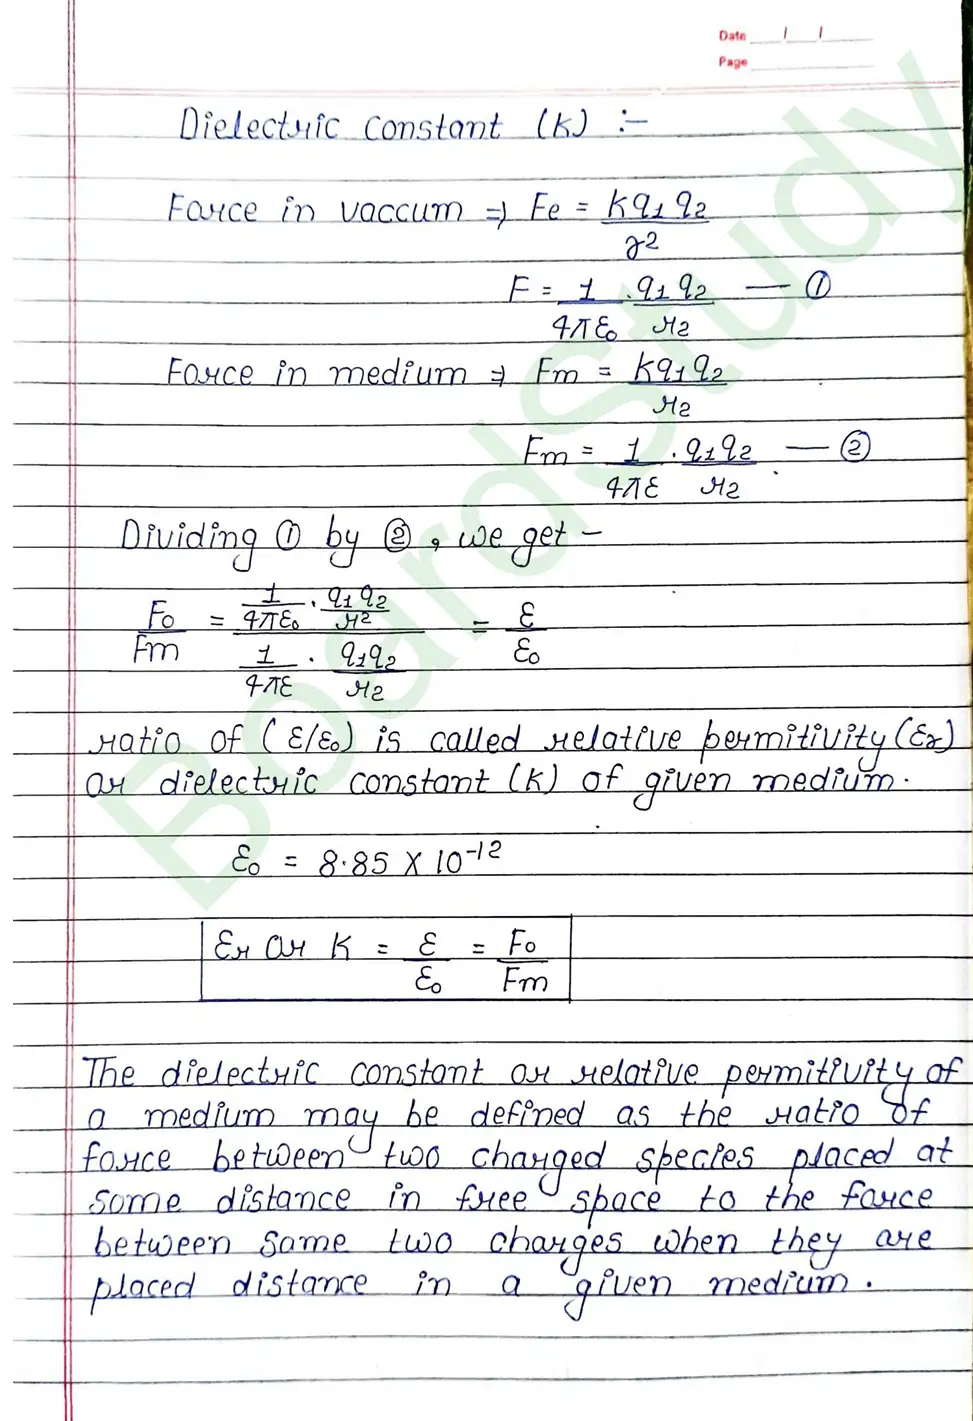 Date / /
Page
Dielectric constant (K) :-
Force in vaccum ⇒ Fe = kq1 q2 / r2
F = 1 / 4πε0 . q1 q2 / r2 — ①
Force in medium ⇒ Fm = kq1q2 / r2
Fm = 1 / 4πε . q1q2 / r2 — ②
Dividing ① by ②, we get -
F0 / Fm = 1 / 4πε0 . q1 q2 / r2 / 1 / 4πε . q1q2 / r2 = ε / ε0
ratio of ( ε/ε0) is called relative permitivity (εr)
or dielectric constant (K) of given medium.
ε0 = 8.85 X 10-12
εr or K = ε / ε0 = F0 / Fm
The dielectric constant or relative permitivity of
a medium may be defined as the ratio of
force between two charged species placed at
some distance in free space to the force
between same two charges when they are
placed distance in a given medium.
BoardStudy